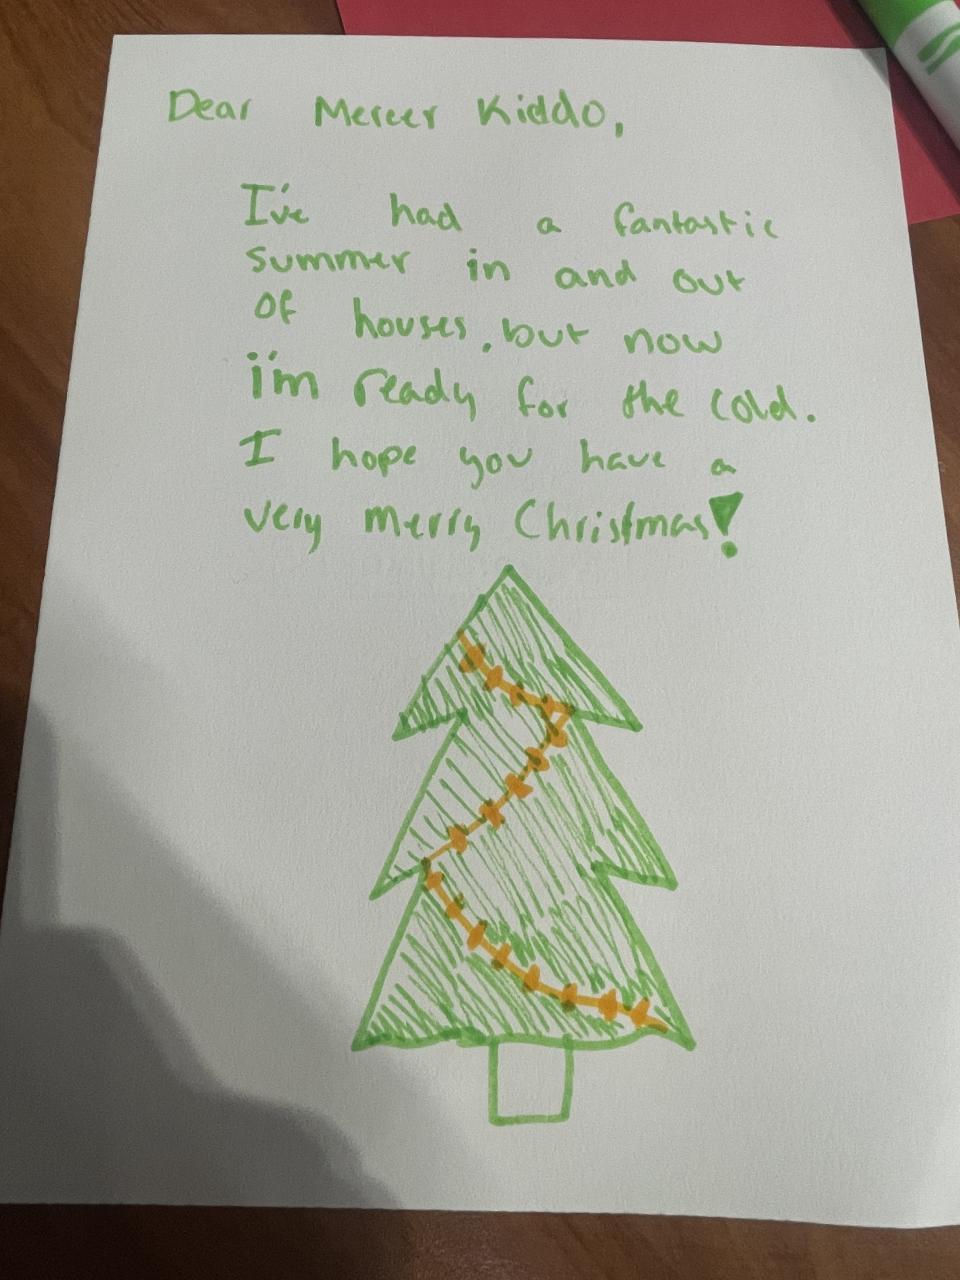 Dear Mercer Kiddo,
I've had a fantastic
summer in and out
of houses, but now
i'm ready for the cold.
I hope you have a
very merry Christmas!